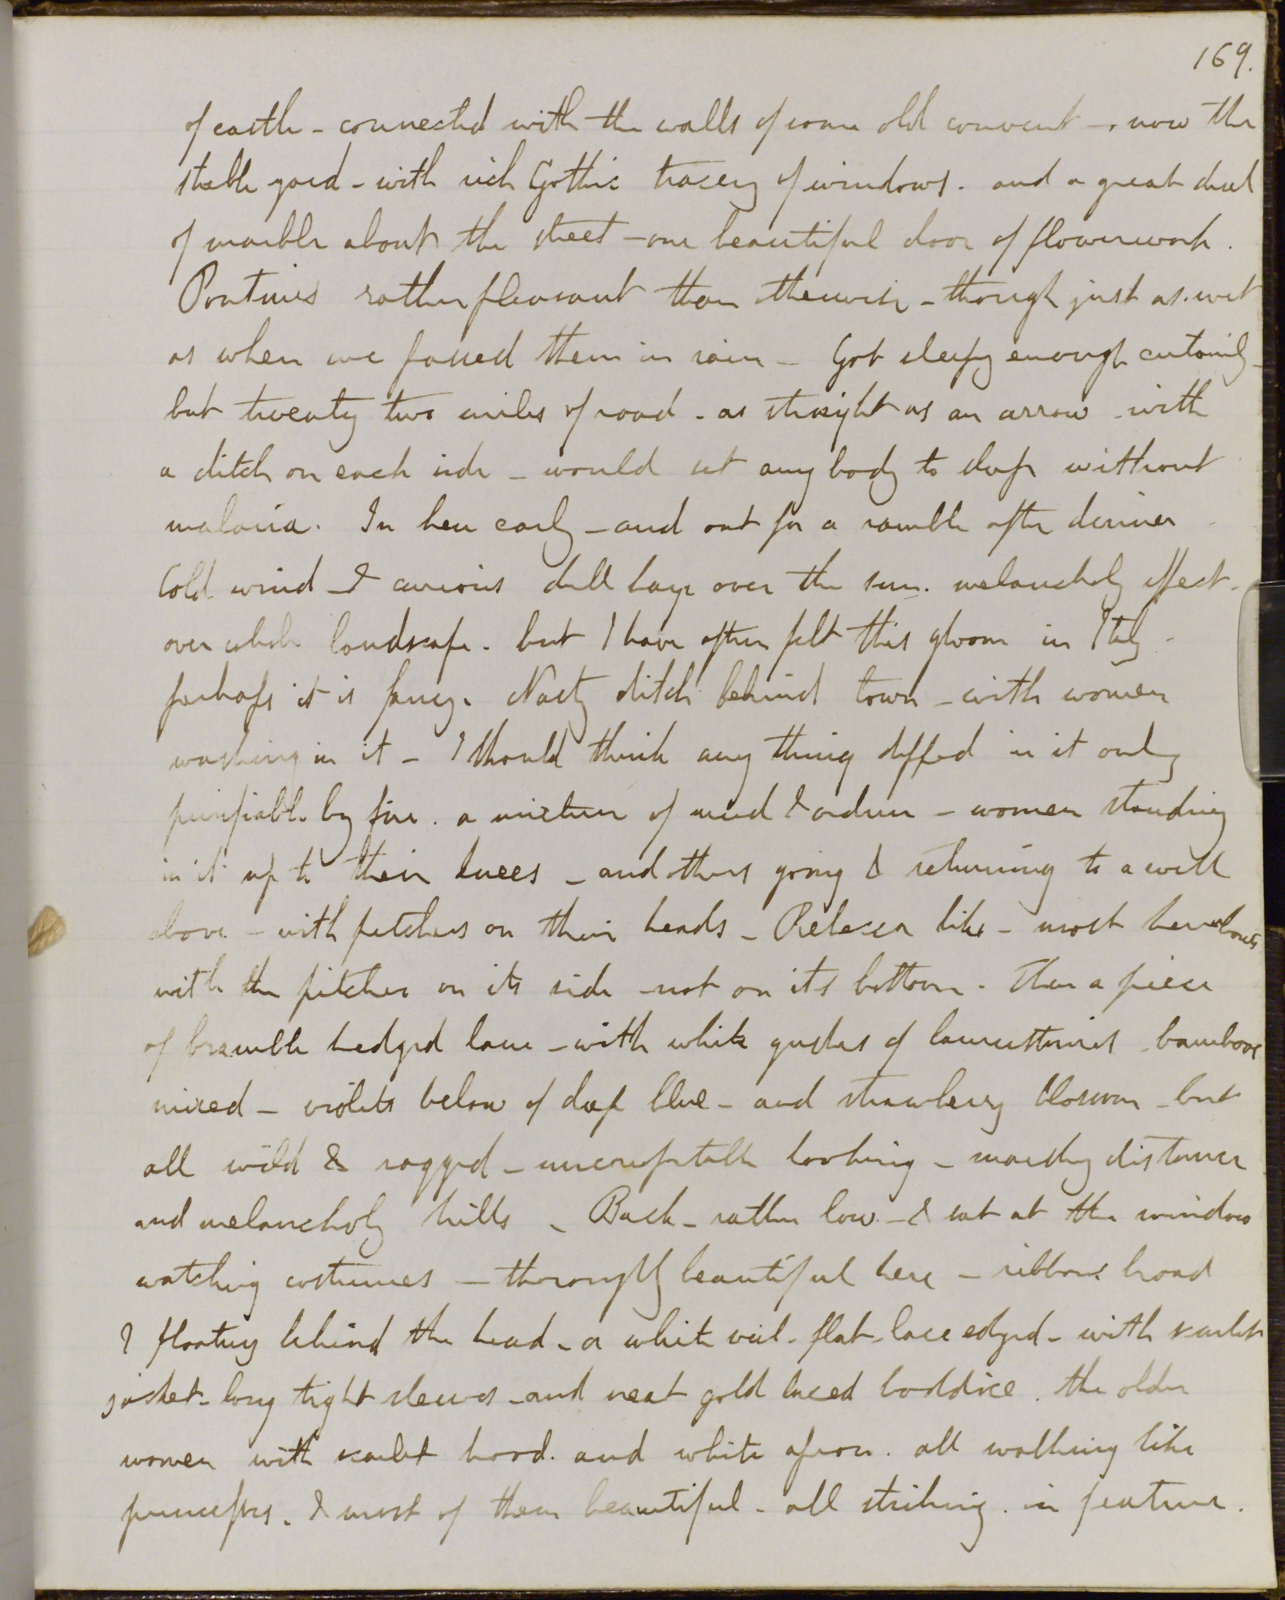 169.
of castle - connected with the walls of some old convent - now the
stable yard - with rich Gothic tracery of windows. and a great deal
of marble about the street - one beautiful door of flowerwork.
Pontines rather pleasant than otherwise - though just as wet
as when we passed them in rain - Got sleepy enough certainly -
but twenty two miles of road - as straight as an arrow - with
a ditch on each side - would set any body to sleep without
malaria. In here early - and out for a ramble after dinner
Cold wind - & curious dull haze over the sun. melancholy effect -
over whole landscape. but I have often felt this gloom in Italy -
perhaps it is fancy. Nasty ditch behind town - with women
washing in it - I should think any thing dipped in it only
purifiable by fire. a mixture of mud & ordure - women standing
in it up to their knees - and others going & returning to a well
above - with pitchers on their heads - Rebecca like - most hereabouts
with the pitcher on its side - not on its bottom. Then a piece
of bramble hedged lane - with white gushes of laurustinus - bamboos
mixed - violets below of deep blue - and strawberry blossom - but
all wild & ragged - uncomfortable looking - marshy distance
and melancholy hills - Back - rather low - & sat at the window
watching costumes - thoroughly beautiful here - ribbons broad
& floating behind the head - a white veil - flat - lace edged - with scarlet
jacket - long tight sleeves - and neat gold laced boddice. the older
women with scarlet hood. and white apron. all walking like
princesses. & most of them beautiful - all striking in feature.